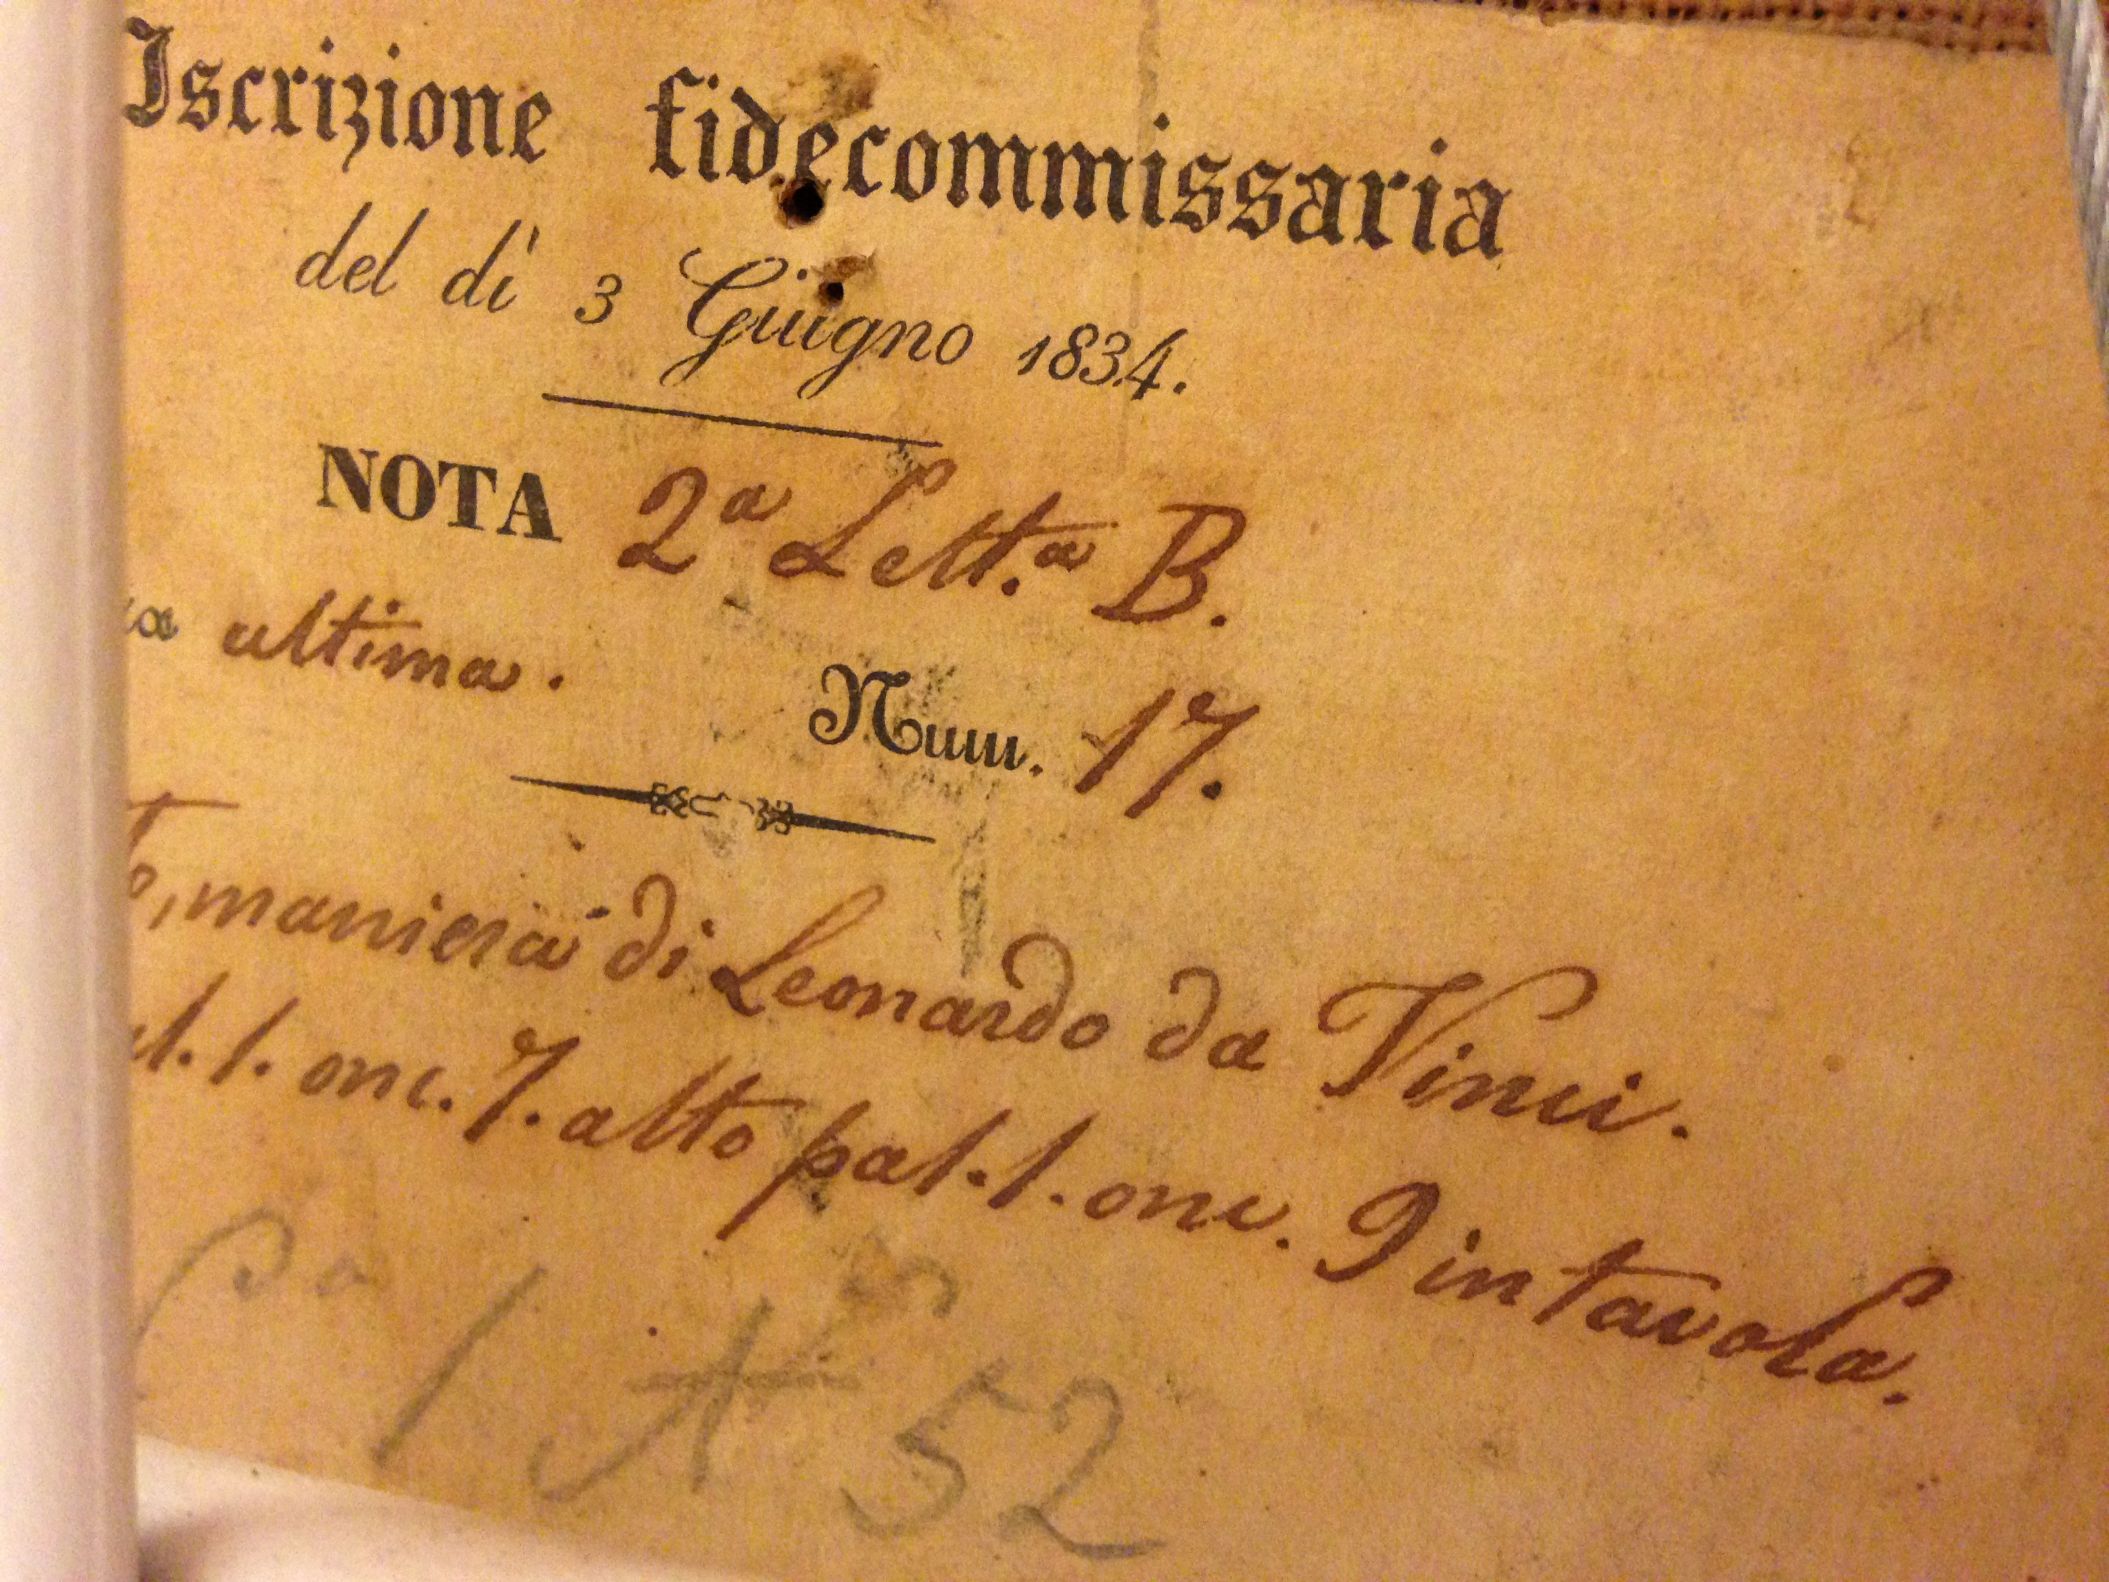 Iscrizione fidecommissaria
del dì 3 Giugno 1834.
NOTA 2ª Lett.ª B.
ultima. Num. 17.
maniera di Leonardo da Vinci.
1. onc. 7. alto pal. 1. onc. 9 in tavola.
1 N 52